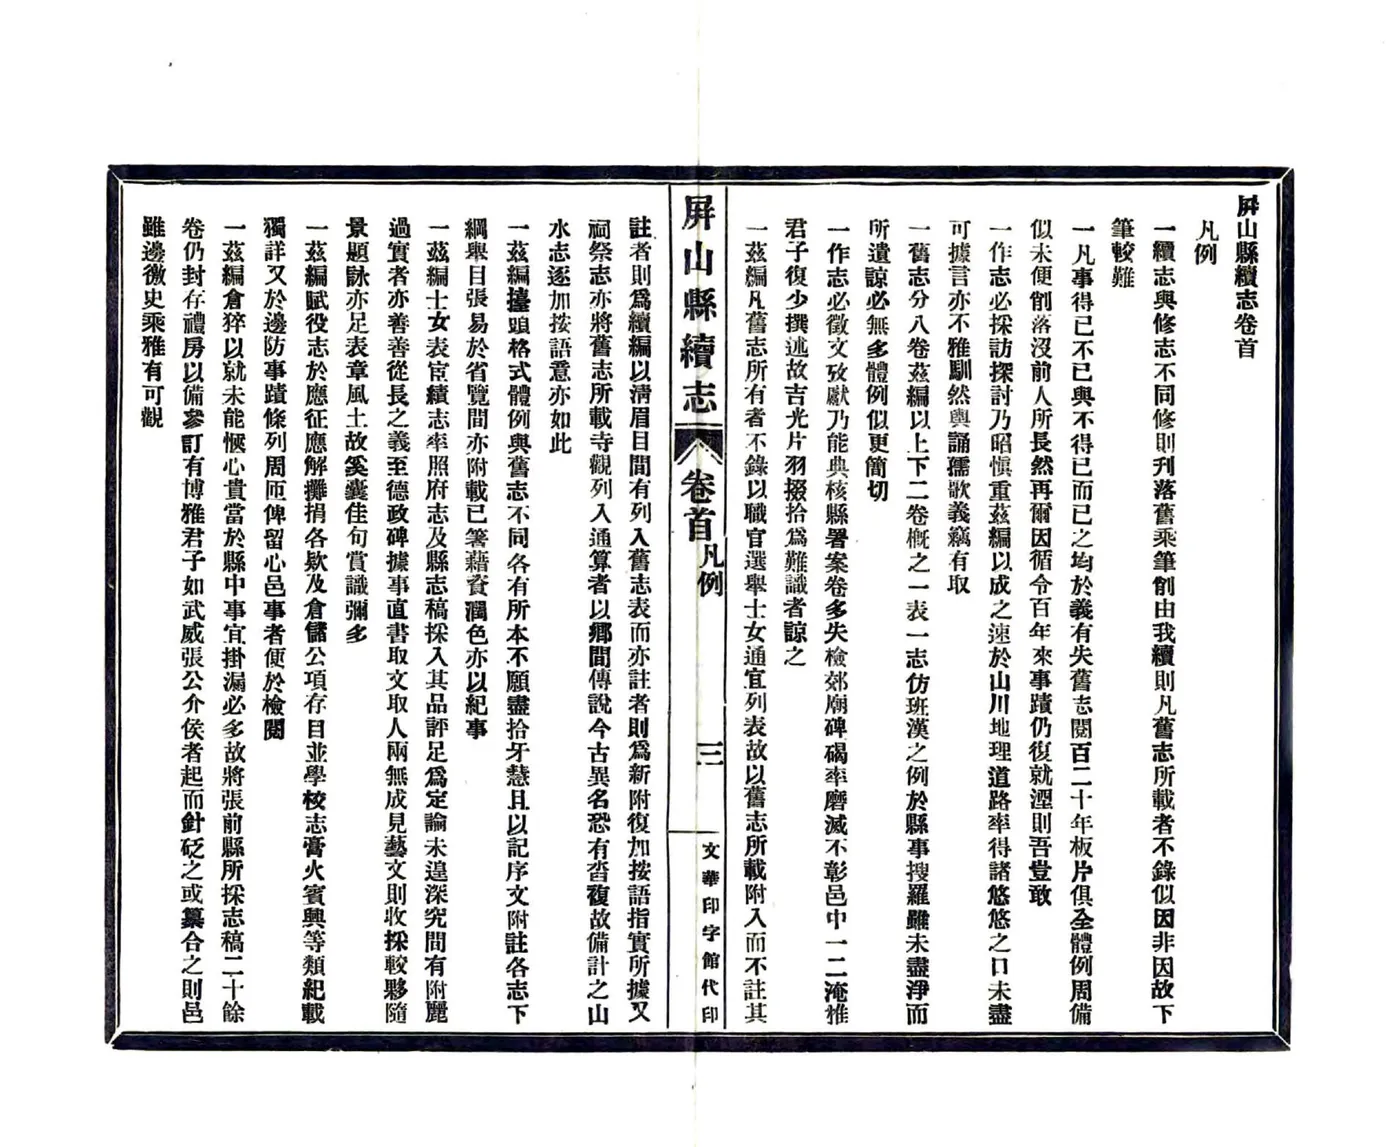 屏山縣續志卷首
凡例
一續志與修志不同修則刋落舊乘筆削由我續則凡舊志所載者不錄似因非因故下
筆較難
一凡事得已不已與不得已而已之均於義有失舊志閱百二十年板片俱全體例周備
似未便削落沒前人所長然再爾因循令百年來事蹟仍復就湮則吾豈敢
一作志必採訪探討乃昭愼重茲編以成之速於山川地理道路率得諸悠悠之口未盡
可據言亦不雅馴然與誦孺歌義竊有取
一舊志分八卷茲編以上下二卷槪之一表一志仿班漢之例於縣事搜羅雖未盡淨而
所遺諒必無多體例似更簡切
一作志必徵文攷獻乃能典核縣署案卷多失檢郊廟碑碣率磨滅不彰邑中一二淹雅
君子復少撰述故吉光片羽掇拾爲難識者諒之
一茲編凡舊志所有者不錄以職官選舉士女通宜列表故以舊志所載附入而不註其
屏山縣續志 卷首 凡例 三 文華印字館代印
註者則爲續編以淸眉目間有列入舊志表而亦註者則爲新附復加按語指實所據又
祠祭志亦將舊志所載寺觀列入通算者以鄉間傳說今古異名恐有沓複故備計之山
水志逐加按語意亦如此
一茲編擡頭格式體例與舊志不同各有所本不願盡拾牙慧且以記序文附註各志下
綱舉目張易於省覽間亦附載已箸藉資潤色亦以紀事
一茲編士女表宦績志率照府志及縣志稿採入其品評足爲定論未遑深究間有附麗
過實者亦善善從長之義至德政碑據事直書取文取人兩無成見藝文則收採較夥隨
景題詠亦足表章風土故奚囊佳句賞識彌多
一茲編賦役志於應征應解攤捐各欵及倉儲公項存目並學校志膏火賓興等類紀載
獨詳又於邊防事蹟條列周匝俾留心邑事者便於檢閱
一茲編倉猝以就未能愜心貴當於縣中事宜掛漏必多故將張前縣所採志稿二十餘
卷仍封存禮房以備參訂有博雅君子如武威張公介侯者起而針砭之或纂合之則邑
雖邊徼史乘雅有可觀